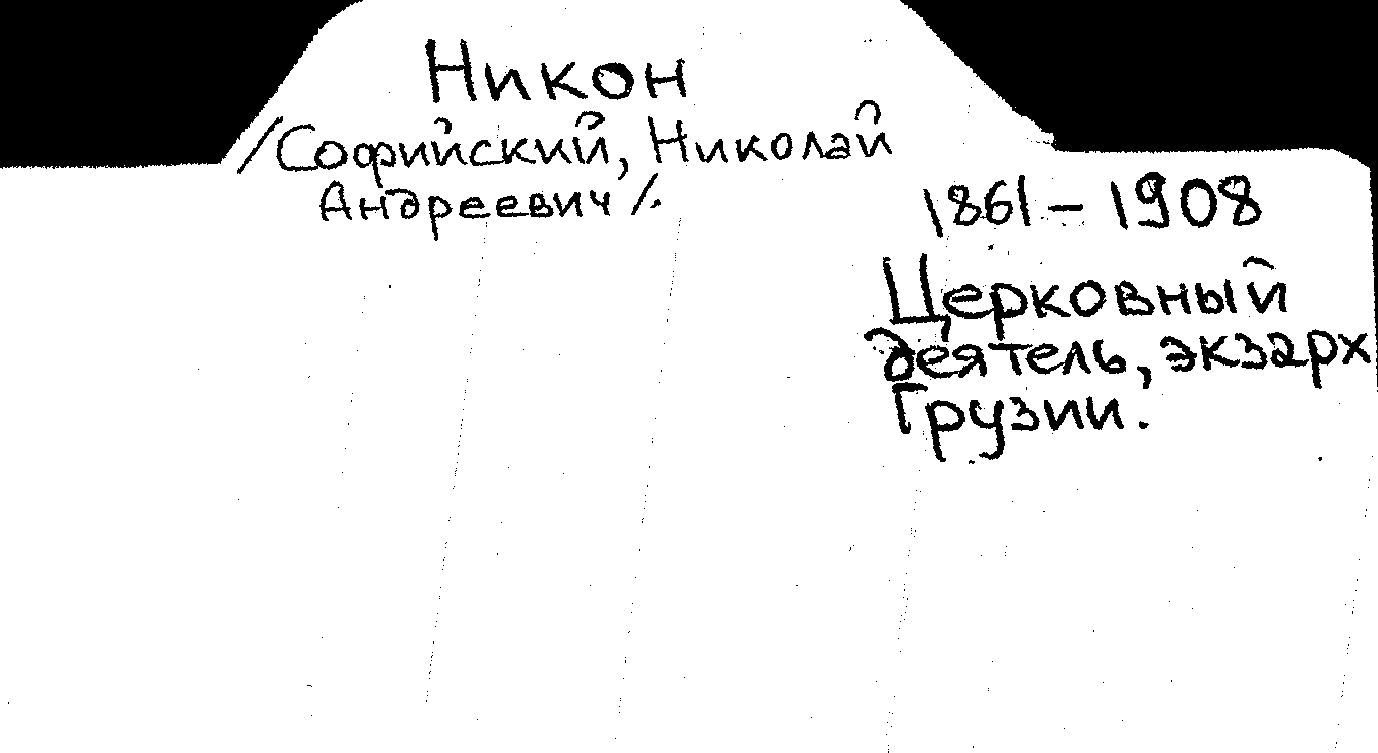 Никон
/Софийский, Николай
Андреевич/.
1861 – 1908
Церковный
деятель, экзарх
Грузии.